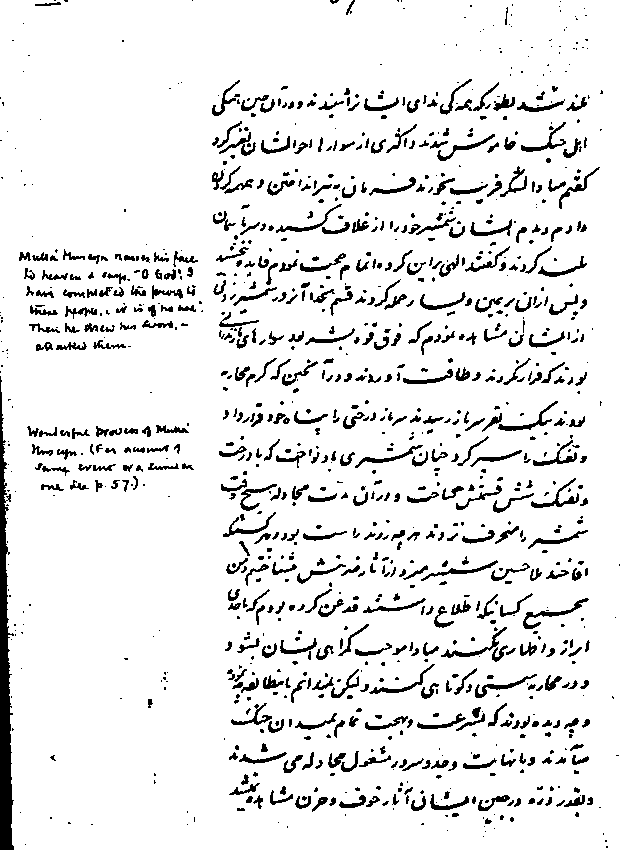 بلند شد بطوریکه همه کی ندای ایشانرا شنیدند و در آن حین همکی
اهل جنک خاموش شدند و اکثری از سوارها احوالشان تغییر کرد
گفتم مبادا لشکر فریب بخورند فرمان به تیر انداختن و حمله کردن
دادم دیدم ایشان شمشیر خود را از غلاف کشیده و سر بآسمان
بلند کردند و گفتند الهی بر این کروه اتمام حجت نمودم فایده نبخشید
و پس از آن بر یمین و یسار حمله کردند قسم بخدا آنروز شمشیر زدنی
از ایشان مشاهده نمودم که فوق قوه بشر بود سوارهای مازندرانی
بودند که فرار نکردند و طاقت آوردند و در آنحین که کرم محاربه
بودند بیک نفر سرباز رسیدند سرباز درختی را پناه خود قرار داد
و تفنک را سپر کرد چنان شمشیری باو نواخت که با درخت
و تفنک شش قسمتش ساخت و در آن مدت مجادله هیچ وقت
شمشیر را منحرف نزدند هر چه زدند راست بود و هر کسیکه
آخند ملا حسین شمشیر میزد از آثار ضربتش میشناختیم و من
بجمیع کسانیکه اطلاع داشتند قدغن کرده بودم که باحدی
ابراز و اظهاری نکنند مبادا موجب کمراهی ایشان بشود و
و در محاربه سستی و کوتاهی کنند ولیکن نمیدانم باینطایفه چه
و چه دیده بودند که بسرعت و بهجت تمام بمیدان جنک
میآمدند و با نهایت وجد و سرور مشغول مجادله می شدند
و بقدر ذره در جبین ایشان آثار خوف و حزن مشاهده نمیشد
Mullá Ḥuseyn raises his face
to heaven & says, "O God! I
have completed the proof to
these people, & it is of no avail."
Then he drew his sword, &
attacked them.
Wonderful prowess of Mullá
Ḥuseyn. (For account of
same event or a similar
one see p. 57.).